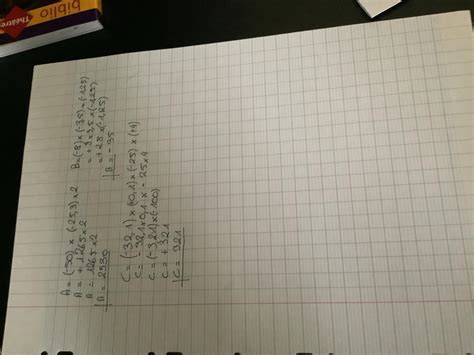 biblio
Théâtre
A = (-50) x (-25,3) x 2
A = + 1265 x 2
A = 1265 x 2
A = 2530
B = (-8) x (-3,5) x (-1,25)
= + 8 x 3,5 x (-1,25)
= + 28 x (-1,25)
B = - 35
C = (-32,1) x (+0,1) x (-25) x (+4)
C = - 32,1 x 0,1 x - 25 x 4
C = (-3,21) x (-100)
C = + 321
C = 321